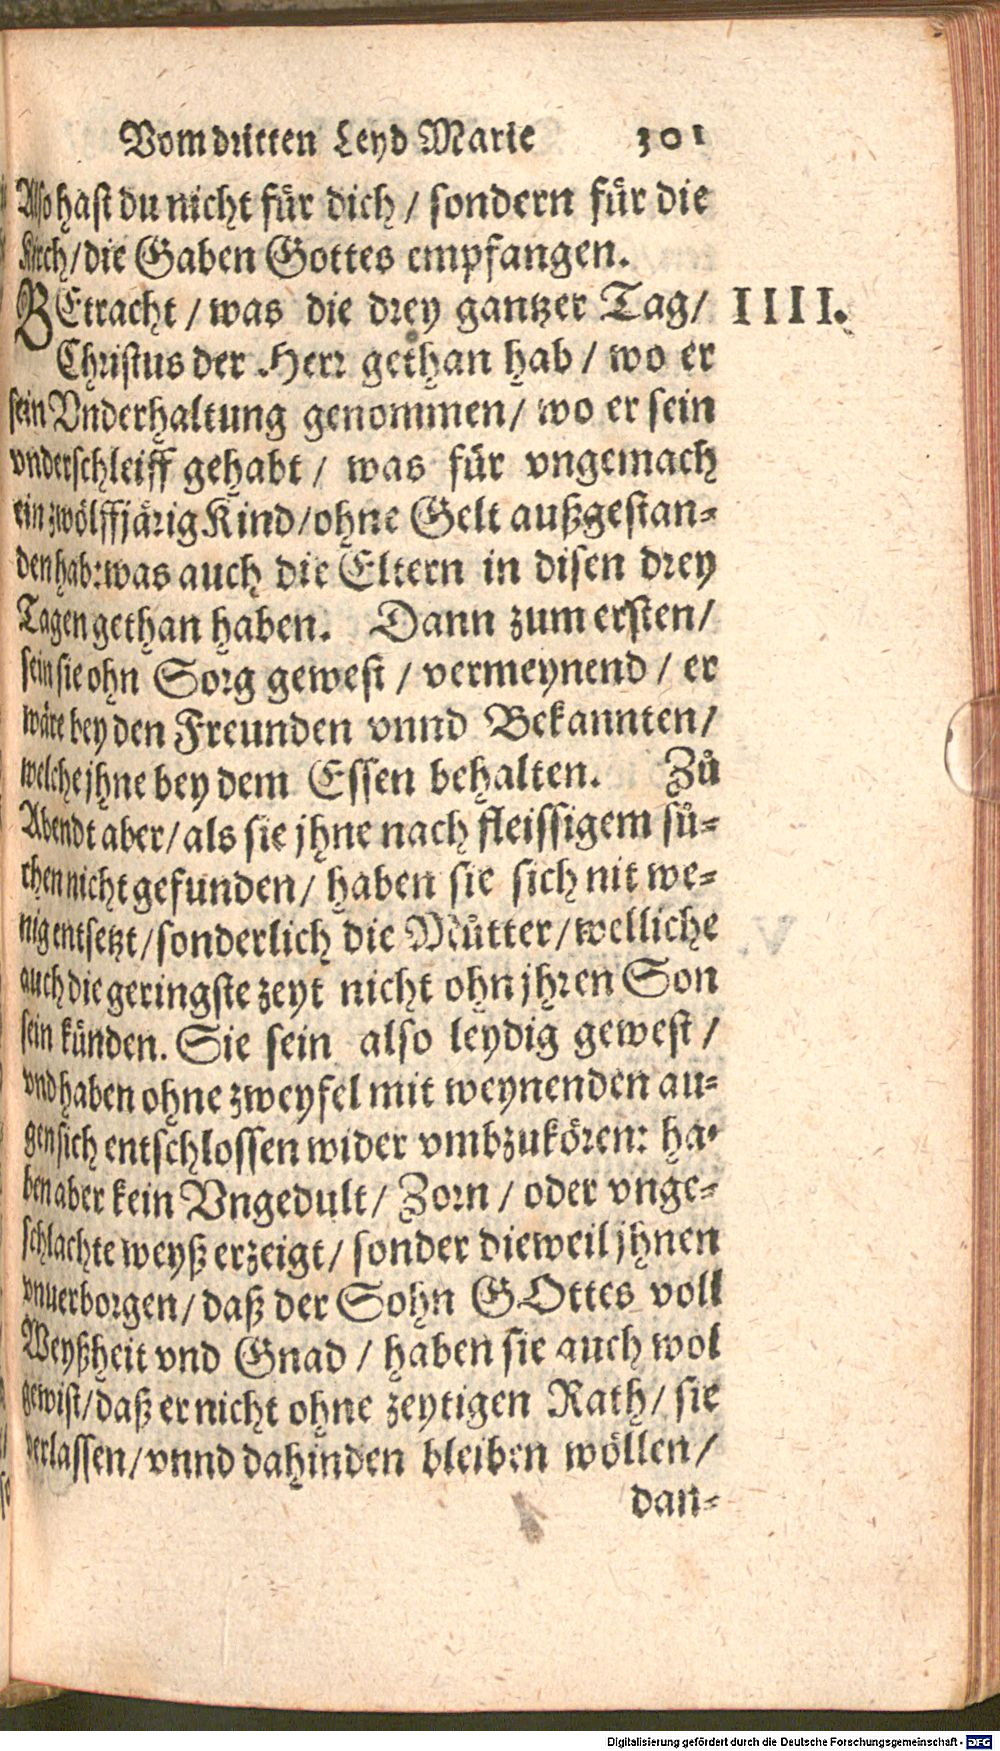 Vom dritten Leyd Marie 301
Also hast du nicht für dich / sondern für die
Kirch / die Gaben Gottes empfangen.
BEtracht / was die drey gantzer Tag / IIII.
Christus der Herr gethan hab / wo er
sein Vnderhaltung genommen / wo er sein
vnderschleiff gehabt / was für vngemach
ein zwölffjärig Kind / ohne Gelt außgestan-
den hab: was auch die Eltern in disen drey
Tagen gethan haben. Dann zum ersten /
sein sie ohn Sorg gewest / vermeynend / er
wäre bey den Freunden vnnd Bekannten /
welche jhne bey dem Essen behalten. Zů
Abendt aber / als sie jhne nach fleissigem sů-
chen nicht gefunden / haben sie sich nit we-
nig entsetzt / sonderlich die Můtter / welliche
auch die geringste zeyt nicht ohn jhren Son
sein künden. Sie sein also leydig gewest /
vnd haben ohne zweyfel mit weynenden au-
gen sich entschlossen wider vmbzukören: ha-
ben aber kein Vngedult / Zorn / oder vnge-
schlachte weyß erzeigt / sonder dieweil jhnen
vnuerborgen / daß der Sohn GOttes voll
Weyßheit vnd Gnad / haben sie auch wol
gewist / daß er nicht ohne zeytigen Rath / sie
verlassen / vnnd dahinden bleiben wöllen /
dan-
Digitalisierung gefördert durch die Deutsche Forschungsgemeinschaft - DFG